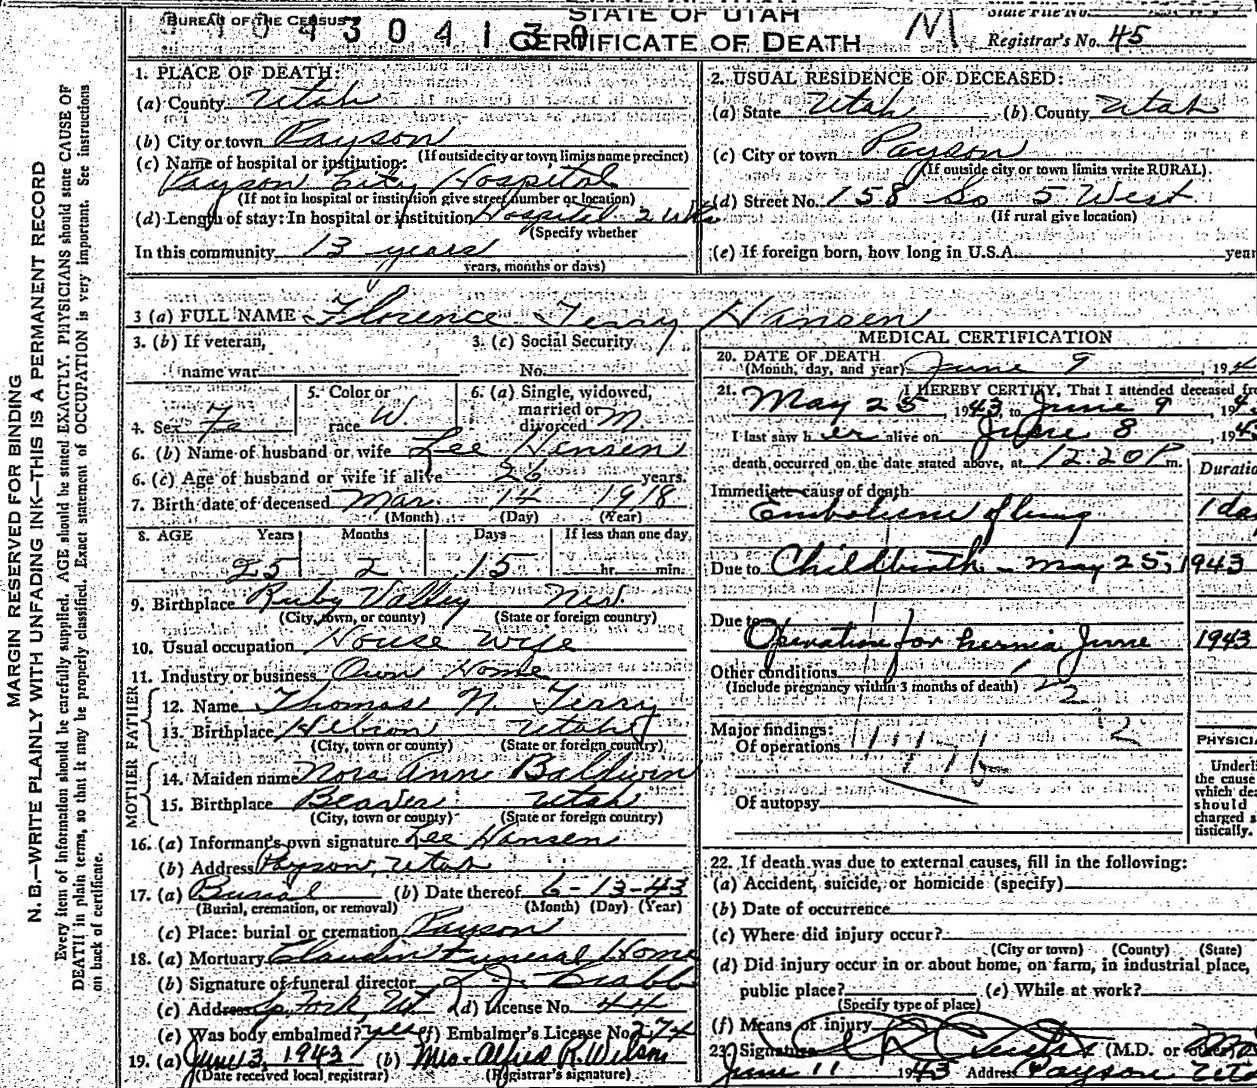 BUREAU OF THE CENSUS
STATE OF UTAH
304130
CERTIFICATE OF DEATH
State File No.
Registrar's No. 45
MARGIN RESERVED FOR BINDING
N. B.—WRITE PLAINLY WITH UNFADING INK—THIS IS A PERMANENT RECORD
Every item of information should be carefully supplied. AGE should be stated EXACTLY. PHYSICIANS should state CAUSE OF
DEATH in plain terms, so that it may be properly classified. Exact statement of OCCUPATION is very important. See instructions
on back of certificate.
1. PLACE OF DEATH:
(a) County Utah
(b) City or town Payson
(If outside city or town limits name precinct)
(c) Name of hospital or institution:
Payson City Hospital
(If not in hospital or institution give street number or location)
(d) Length of stay: In hospital or institution Hospital 2 wks
(Specify whether
In this community 13 years
years, months or days)
2. USUAL RESIDENCE OF DECEASED:
(a) State Utah (b) County Utah
(c) City or town Payson
(If outside city or town limits write RURAL)
(d) Street No. 158 So 5 West
(If rural give location)
(e) If foreign born, how long in U.S.A. year
3 (a) FULL NAME Florence Terry Hansen
3. (b) If veteran, 3. (c) Social Security
name war No.
4. Sex Fe 5. Color or race W 6. (a) Single, widowed, married or divorced M
6. (b) Name of husband or wife Lee Hansen
6. (c) Age of husband or wife if alive 26 years.
7. Birth date of deceased Mar. 14 1918
(Month) (Day) (Year)
8. AGE Years Months Days If less than one day
25 2 15 hr. min.
9. Birthplace Ruby Valley Nev.
(City, town, or county) (State or foreign country)
10. Usual occupation House Wife
11. Industry or business Own Home
FATHER
12. Name Thomas N. Terry
13. Birthplace Hebron Utah
(City, town or county) (State or foreign country)
MOTHER
14. Maiden name Nora Ann Baldwin
15. Birthplace Beaver Utah
(City, town or county) (State or foreign country)
16. (a) Informant's own signature Lee Hansen
(b) Address Payson, Utah
17. (a) Burial (b) Date thereof 6-13-43
(Burial, cremation, or removal) (Month) (Day) (Year)
(c) Place: burial or cremation Payson
18. (a) Mortuary Claudin Funeral Home
(b) Signature of funeral director
(c) Address Sp Fork, Ut (d) License No. 44
(e) Was body embalmed? yes (f) Embalmer's License No. 274
19. (a) June 13, 1943 (b) Mrs. Alfred R. Wilson
(Date received local registrar) (Registrar's signature)
MEDICAL CERTIFICATION
20. DATE OF DEATH
(Month, day, and year) June 9, 194
21. I HEREBY CERTIFY, That I attended deceased
May 25, 1943, to June 9, 194
I last saw her alive on June 8, 194
death occurred on the date stated above, at 12:20 P m.
Duratio
Immediate cause of death
Embolism of lung 1 da
Due to Childbirth - May 25, 1943
Due to
Operation for hernia June 1943
Other conditions
(Include pregnancy within 3 months of death)
Major findings:
Of operations
Of autopsy
PHYSICI
Underl
the cause
which dea
should
charged s
tistically.
22. If death was due to external causes, fill in the following:
(a) Accident, suicide, or homicide (specify)
(b) Date of occurrence
(c) Where did injury occur?
(City or town) (County) (State)
(d) Did injury occur in or about home, on farm, in industrial place,
public place? (e) While at work?
(Specify type of place)
(f) Means of injury
23. Signature (M.D. or other)
June 11 1943 Address Payson Uta